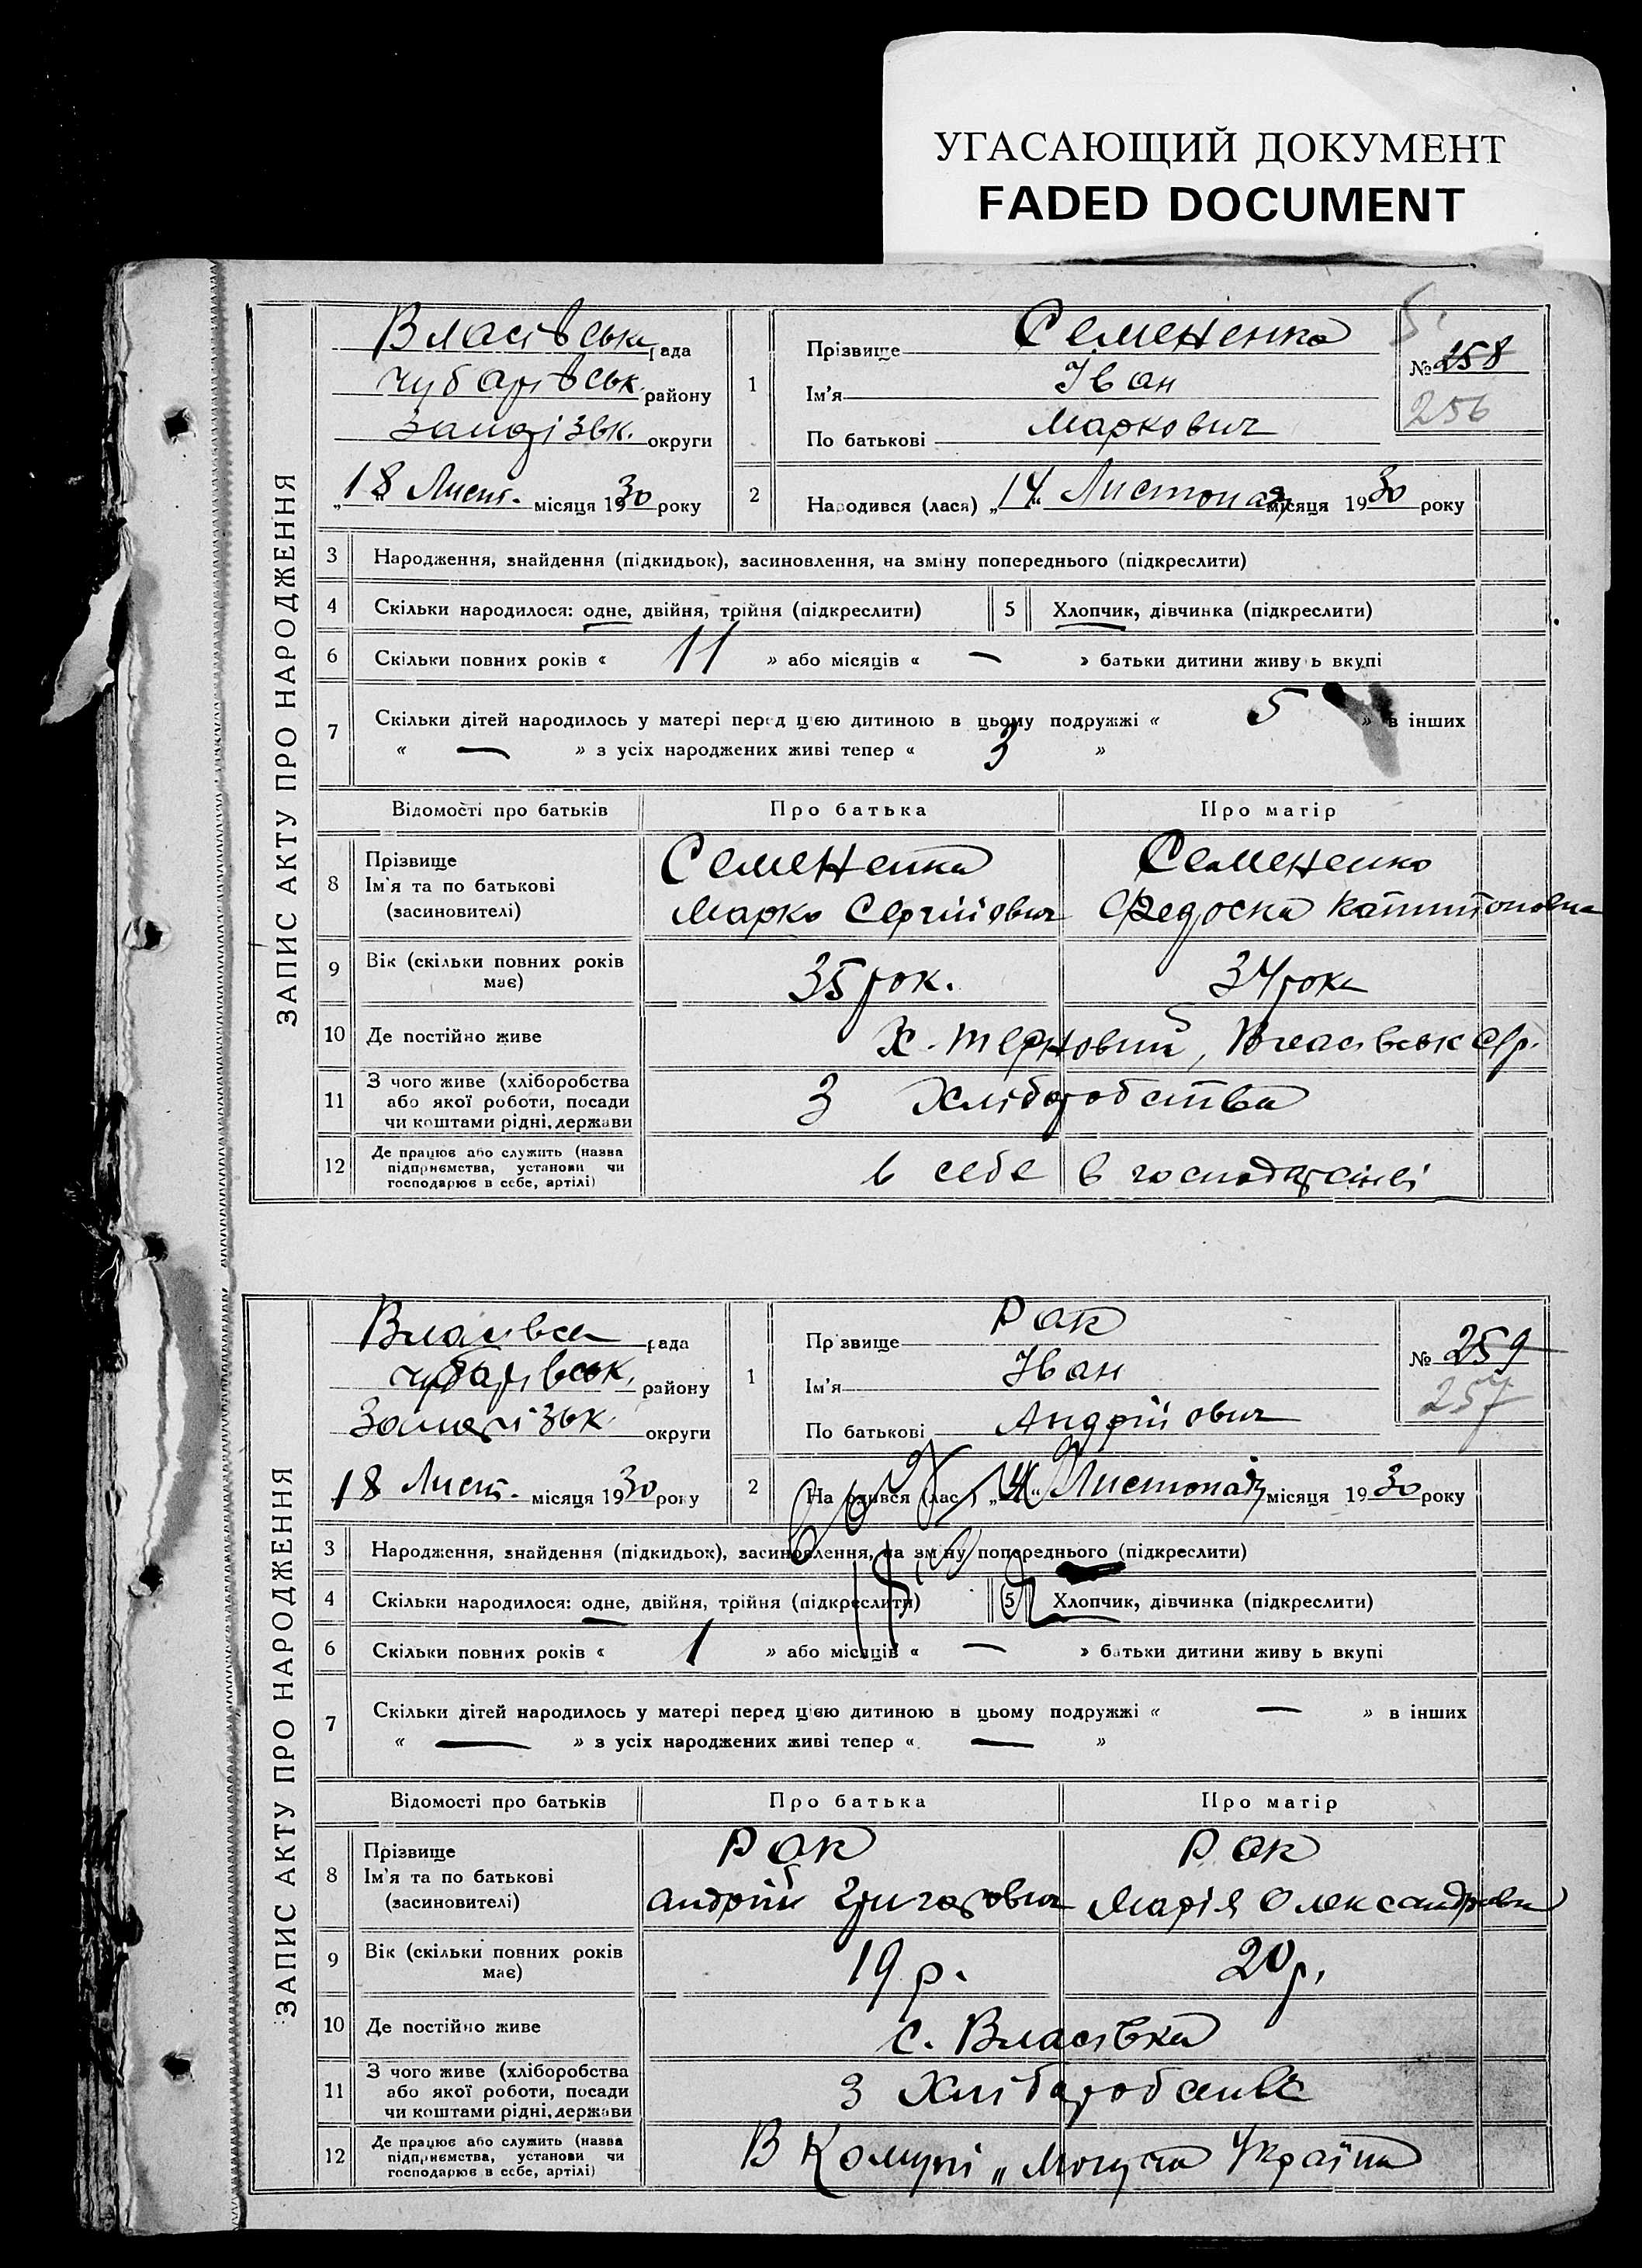 УГАСАЮЩИЙ ДОКУМЕНТ
FADED DOCUMENT
ЗАПИС АКТУ ПРО НАРОДЖЕННЯ
Власівська рада
Чубарівськ. району
Запорізьк. округи
„18 Лист. місяця 1930 року
1 Прізвище Семененко
Ім'я Іван
По батькові Маркович
№ 258
256
2 Народився (лася) „14“ Листопад місяця 1930 року
3 Народження, знайдення (підкидьок), засиновлення, на зміну попереднього (підкреслити)
4 Скільки народилося: одне, двійня, трійня (підкреслити) 5 Хлопчик, дівчинка (підкреслити)
6 Скільки повних років « 11 » або місяців « — » батьки дитини живуть вкупі
7 Скільки дітей народилось у матері перед цією дитиною в цьому подружжі « 5 » в інших
« — » з усіх народжених живі тепер « 3 »
Відомості про батьків Про батька Про матір
8 Прізвище Семененко Семененко
Ім'я та по батькові
(засиновителі) Марко Сергійович Федоска Капитоновна
9 Вік (скільки повних років має) 35 рок. 34 рока
10 Де постійно живе Х. Терновий, Власівськ с/р.
11 З чого живе (хліборобства
або якої роботи, посади
чи коштами рідні, держави З хліборобства
12 Де працює або служить (назва
підприємства, установи чи
господарює в себе, артілі) в себе в господарстві
ЗАПИС АКТУ ПРО НАРОДЖЕННЯ
Власівсь рада
Чубарівськ. району
Запорізьк. округи
18 Лист. місяця 1930 року
1 Прізвище Рак
Ім'я Іван
По батькові Андрійович
№ 259
257
2 Народився (лася) „14“ Листопад місяця 1930 року
3 Народження, знайдення (підкидьок), засиновлення, на зміну попереднього (підкреслити)
4 Скільки народилося: одне, двійня, трійня (підкреслити) 5 Хлопчик, дівчинка (підкреслити)
6 Скільки повних років « 1 » або місяців « — » батьки дитини живуть вкупі
7 Скільки дітей народилось у матері перед цією дитиною в цьому подружжі « — » в інших
« — » з усіх народжених живі тепер « — »
Відомості про батьків Про батька Про матір
8 Прізвище Рак Рак
Ім'я та по батькові
(засиновителі) Андрій Григорович Марія Олександровна
9 Вік (скільки повних років має) 19 р. 20 р.
10 Де постійно живе с. Власівка
11 З чого живе (хліборобства
або якої роботи, посади
чи коштами рідні, держави З хліборобства
12 Де працює або служить (назва
підприємства, установи чи
господарює в себе, артілі) В Комуні „Могуча Україна